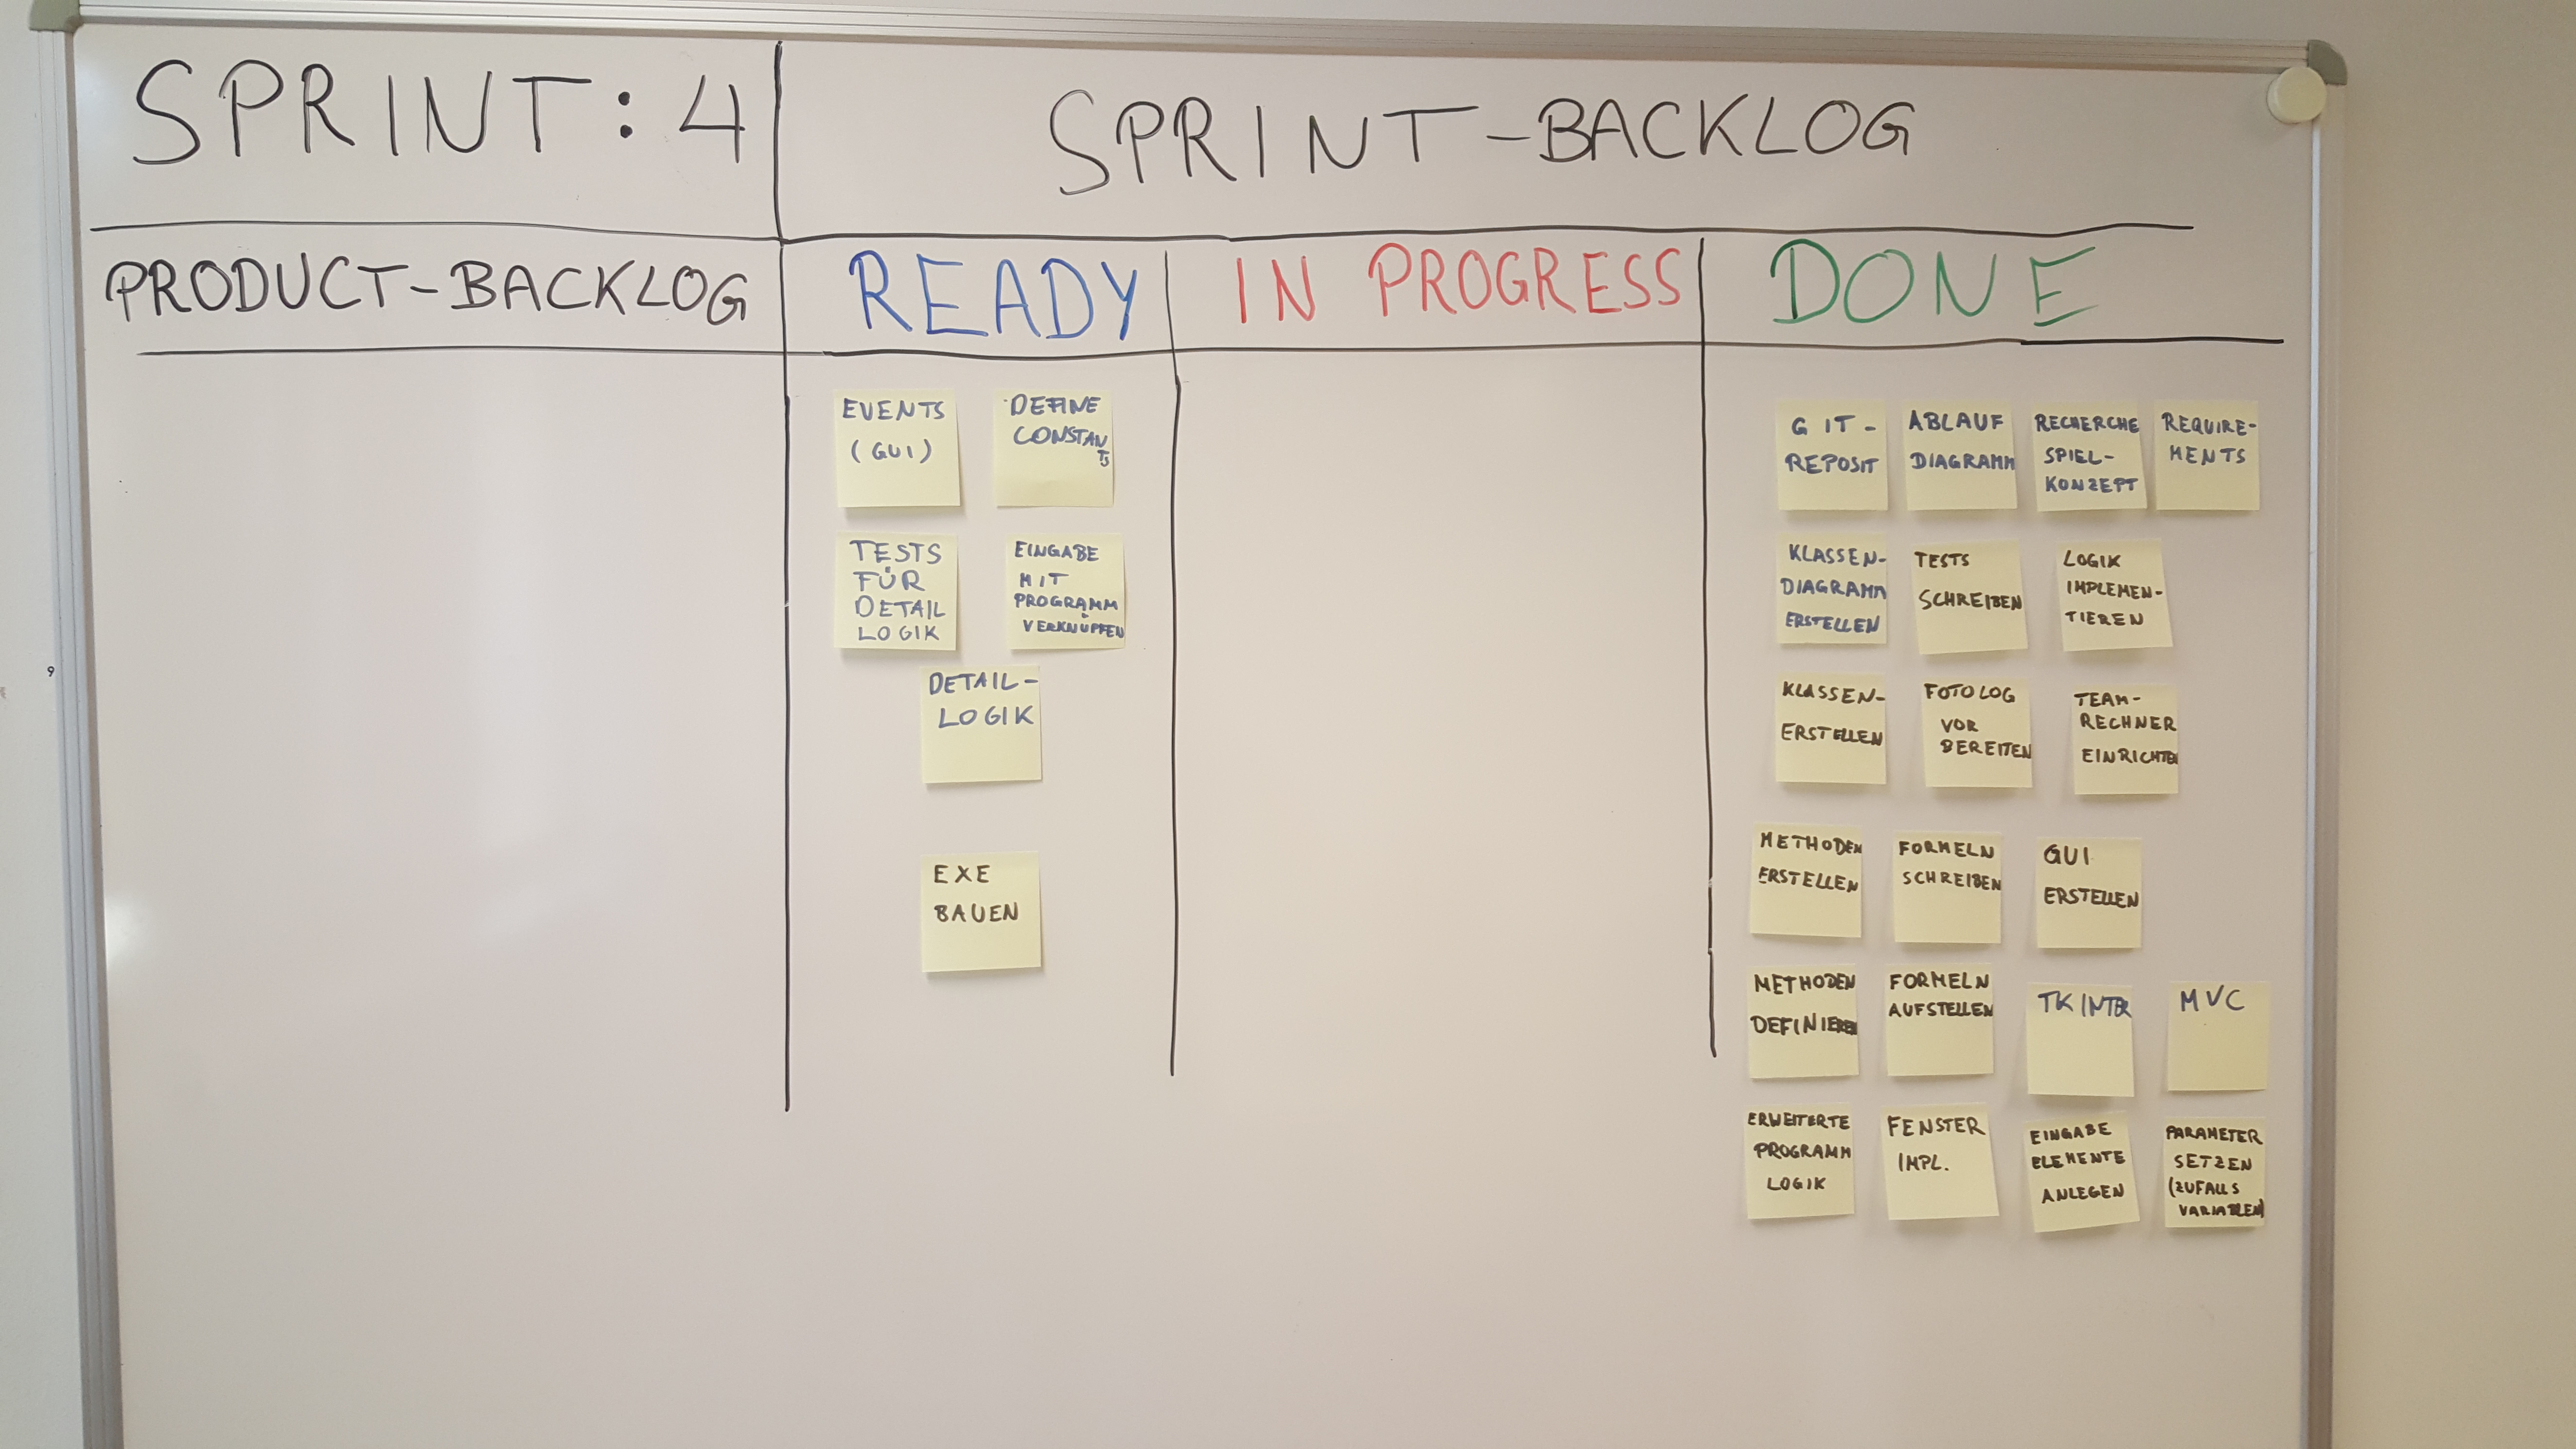 SPRINT: 4
SPRINT-BACKLOG
PRODUCT-BACKLOG
READY
IN PROGRESS
DONE
EVENTS
(GUI)
DEFINE
CONSTAN
TS
TESTS
FÜR
DETAIL
LOGIK
EINGABE
MIT
PROGRAMM
VERKNÜPFEN
DETAIL-
LOGIK
EXE
BAUEN
GIT-
REPOSIT
ABLAUF
DIAGRAMM
RECHERCHE
SPIEL-
KONZEPT
REQUIRE-
MENTS
KLASSEN-
DIAGRAMM
ERSTELLEN
TESTS
SCHREIBEN
LOGIK
IMPLEMEN-
TIEREN
KLASSEN-
ERSTELLEN
FOTOLOG
VOR
BEREITEN
TEAM-
RECHNER
EINRICHTEN
METHODEN
ERSTELLEN
FORMELN
SCHREIBEN
GUI
ERSTELLEN
METHODEN
DEFINIEREN
FORMELN
AUFSTELLEN
TKINTER
MVC
ERWEITERTE
PROGRAMM
LOGIK
FENSTER
IMPL.
EINGABE
ELEMENTE
ANLEGEN
PARAMETER
SETZEN
(ZUFALLS
VARIABLEN)
9